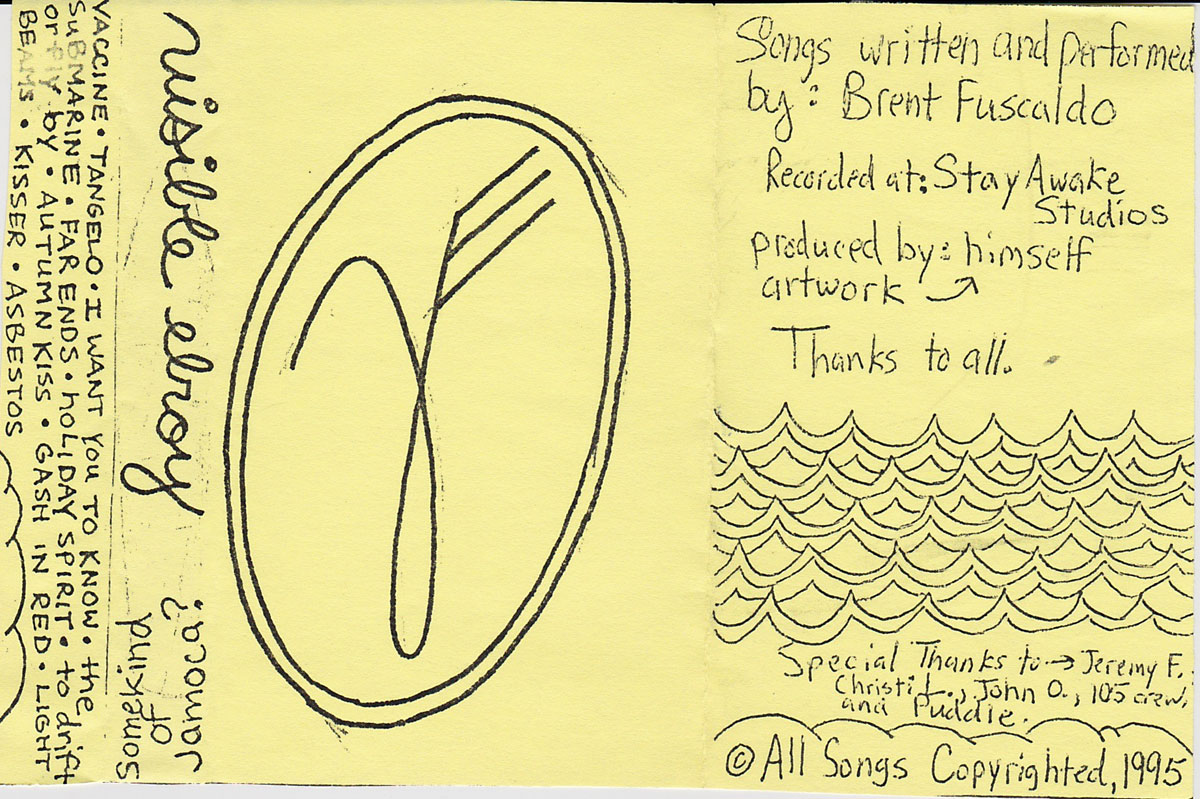 VACCINE • TANGELO • I WANT YOU TO KNOW • the
SUBMARINE • FAR ENDS • hoLIDAY SPIRIT • to drift
or fly by • AUTUMN KISS • GASH IN RED • LIGHT
BEAMS • KISSER • ASBESTOS
visible ebroy
somekind
of
jamoca?
Songs written and performed
by: Brent Fuscaldo
Recorded at: Stay Awake
Studios
produced by: himself
artwork
Thanks to all.
Special Thanks to → Jeremy F.
Christi L., John O., 105 crew,
and Puddle.
© All Songs Copyrighted, 1995